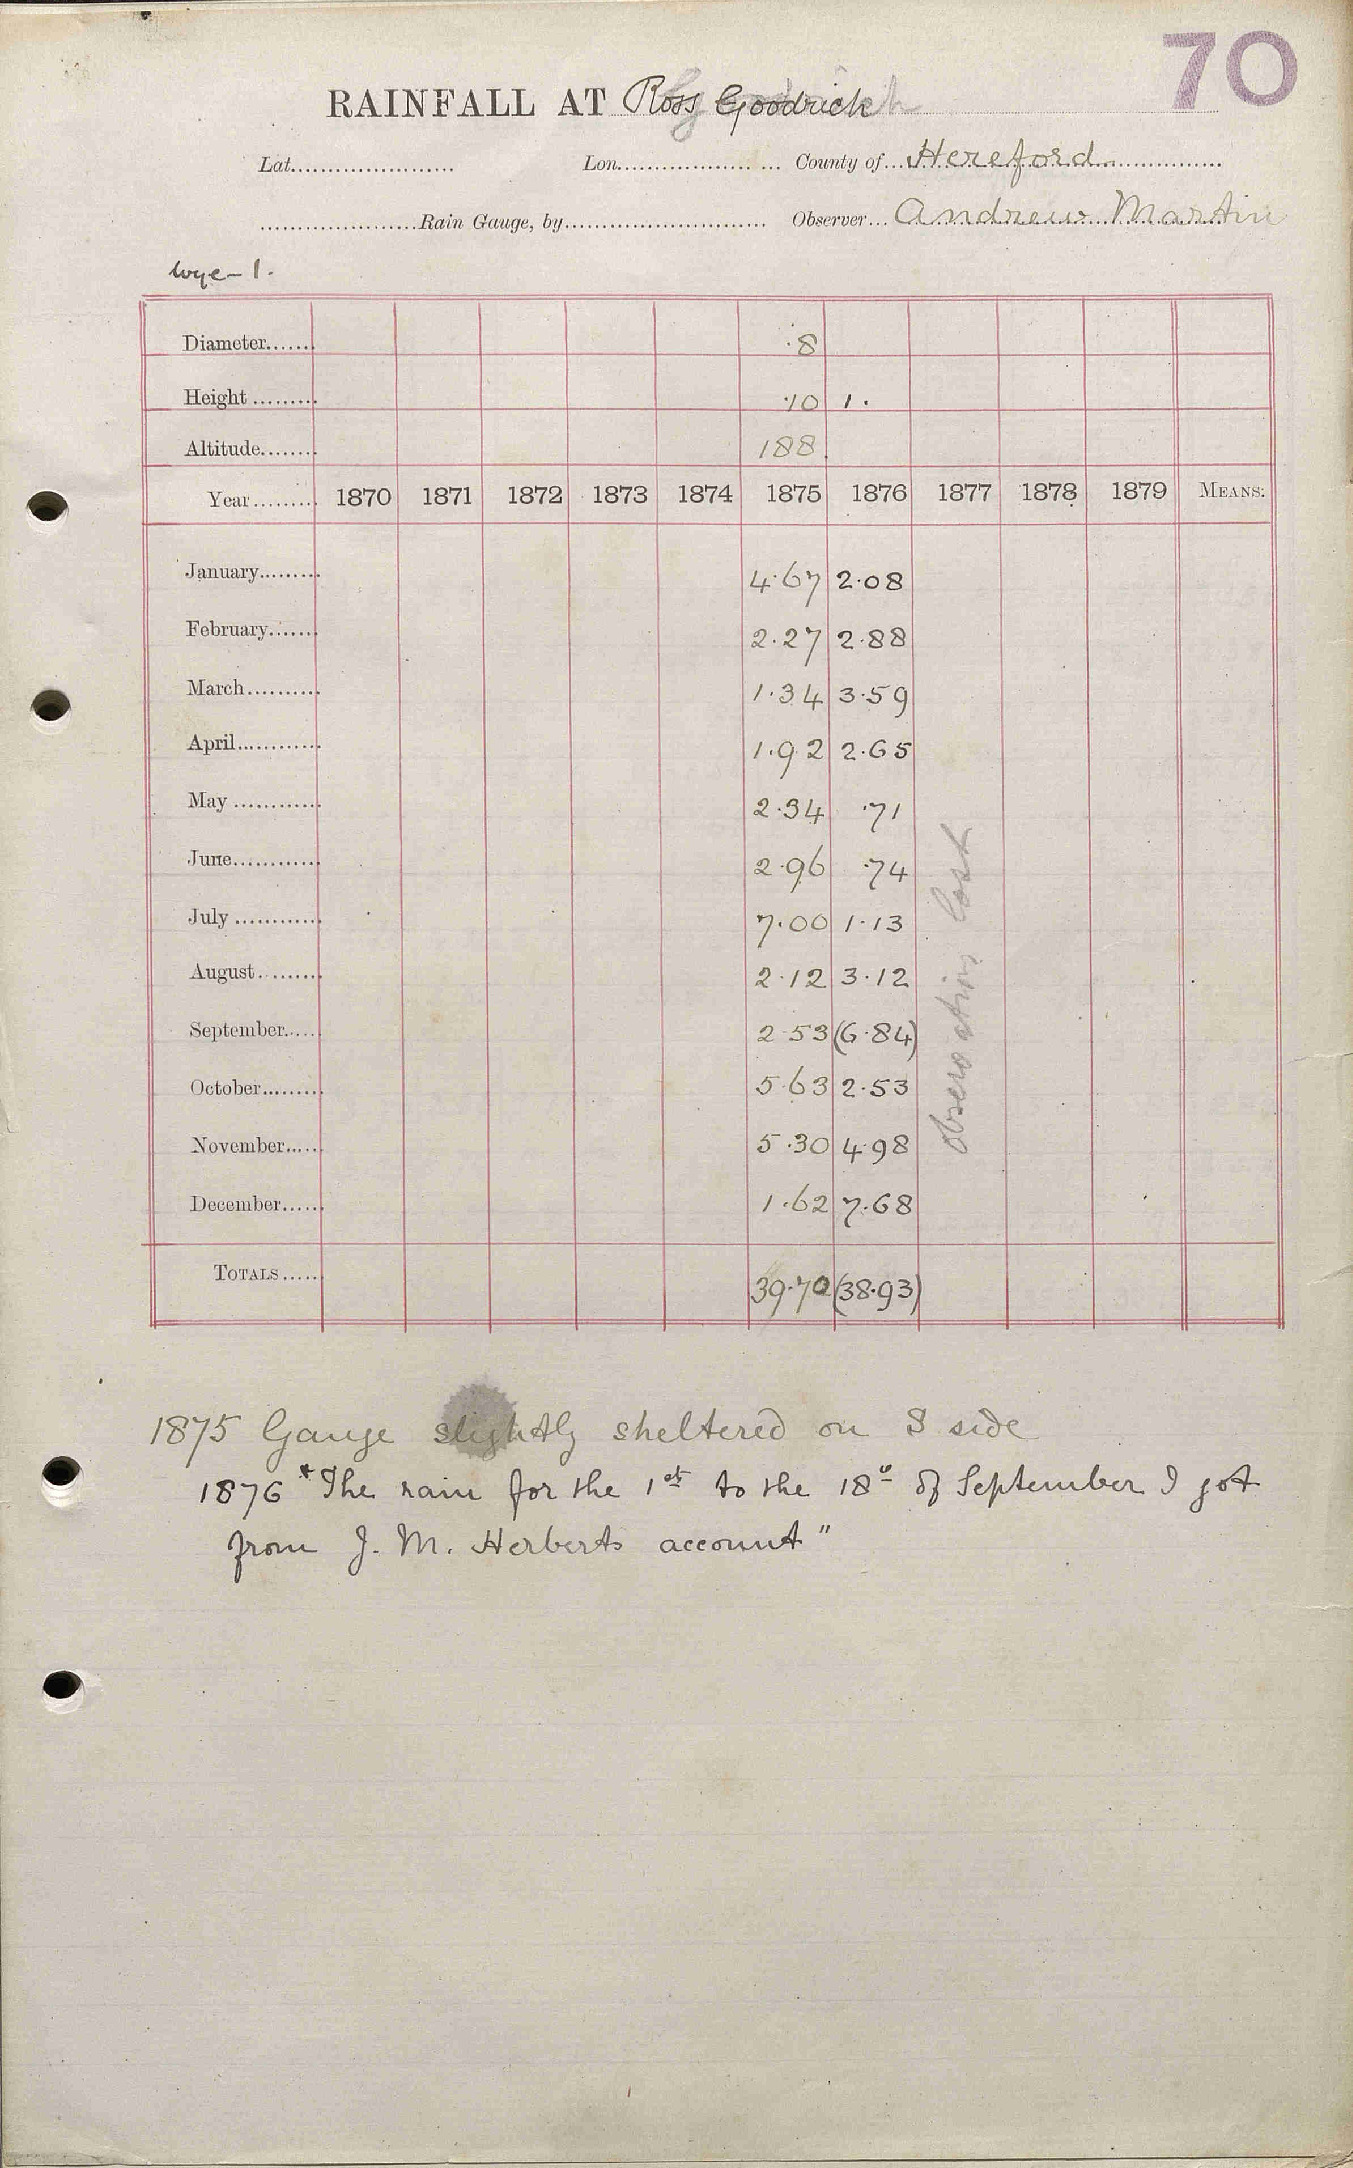 70
RAINFALL AT Ross Goodrich
Lat. Lon. County of Hereford
Rain Gauge, by Observer Andrew Martin
Wye - 1.
Diameter ·8
Height ·10 1.
Altitude 188.
Year 1870 1871 1872 1873 1874 1875 1876 1877 1878 1879 MEANS:
January 4·67 2·08
February 2·27 2·88
March 1·34 3·59
April 1·92 2·65
May 2·34 ·71
June 2·96 ·74
July 7·00 1·13
August 2·12 3·12
September 2·53 (6·84)
October 5·63 2·53
November 5·30 4·98
December 1·62 7·68
observations lost
TOTALS 39·70 (38·93)
1875 Gauge slightly sheltered on S side
1876 "The rain for the 1st to the 18th of September I got
from J. M. Herberts account"